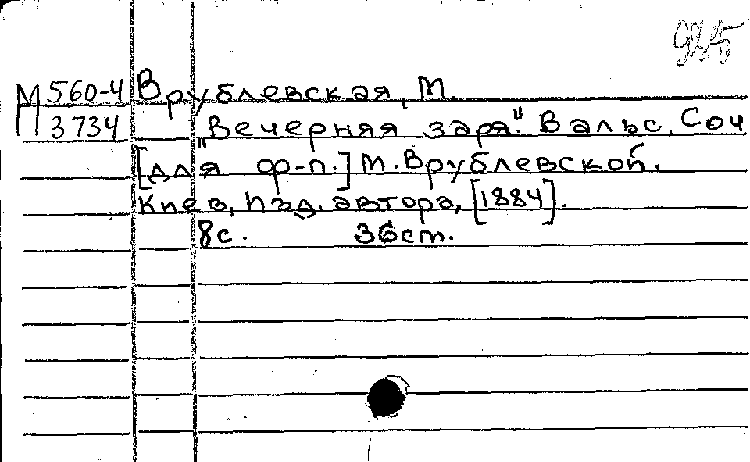 925
М 560-4 Врублевская, М.
3734 "Вечерняя заря". Вальс. Соч
[для ф-п.] М. Врублевской.
Киев, изд. автора, [1884].
8с. 36ст.